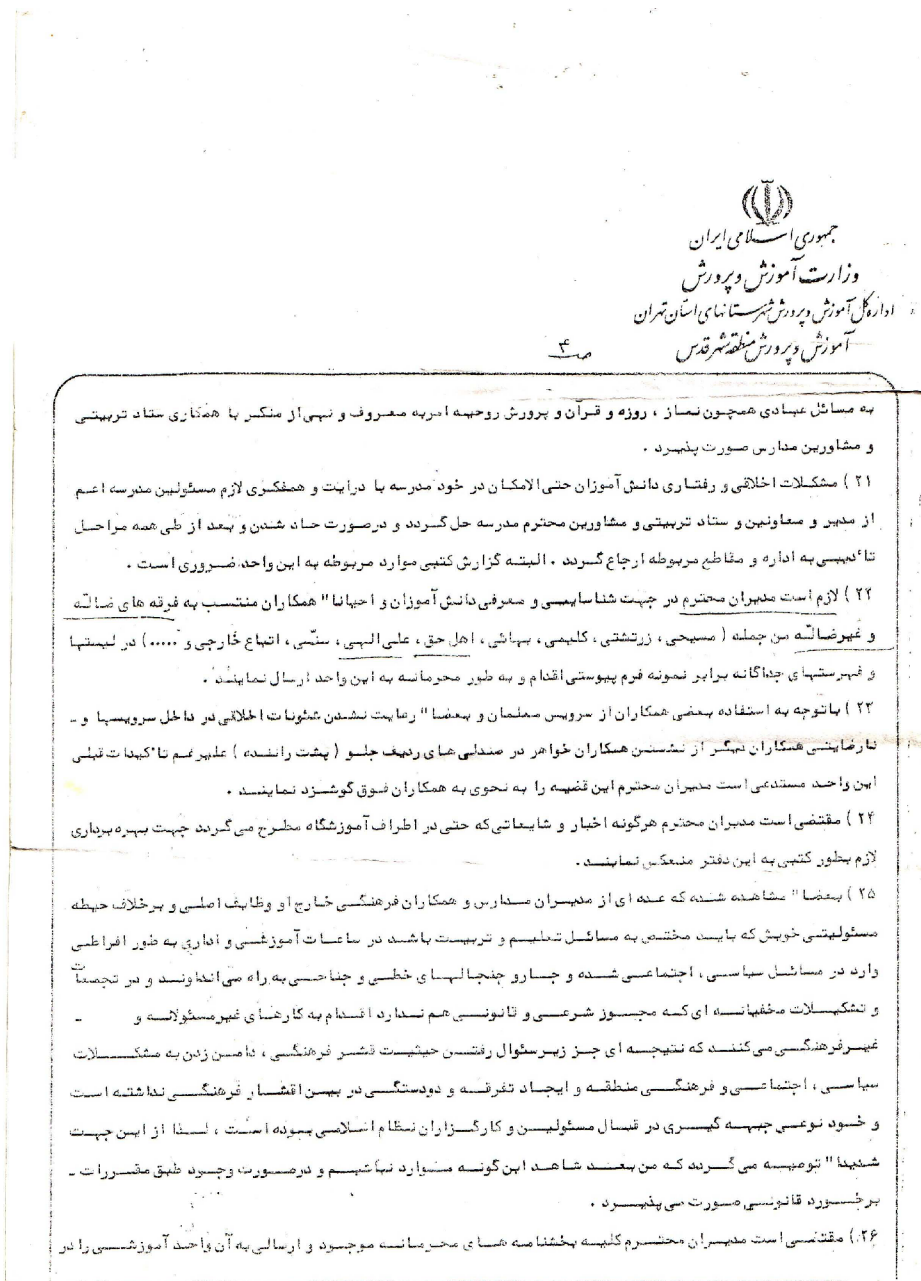 جمهوری اسلامی ایران
وزارت آموزش و پرورش
اداره کل آموزش و پرورش شهرستانهای استان تهران
آموزش و پرورش منطقه شهر قدس
ص ۴
به مسائل عبادی همچون نماز ، روزه و قرآن و پرورش روحیه امر به معروف و نهی از منکر با همکاری ستاد تربیتی
و مشاورین مدارس صورت پذیرد .
۲۱ ) مشکلات اخلاقی و رفتاری دانش آموزان حتی الامکان در خود مدرسه با درایت و همفکری لازم مسئولین مدرسه اعم
از مدیر و معاونین و ستاد تربیتی و مشاورین محترم مدرسه حل گردد و درصورت حاد شدن و بعد از طی همه مراحل
تأدیبی به اداره و مقاطع مربوطه ارجاع گردد . البته گزارش کتبی موارد مربوطه به این واحد ضروری است .
۲۲ ) لازم است مدیران محترم در جهت شناسایی و معرفی دانش آموزان و احیانا" همکاران منتسب به فرقه های ضاله
و غیرضاله من جمله ( مسیحی ، زرتشتی ، کلیمی ، بهائی ، اهل حق ، علی الهی ، سنّی ، اتباع خارجی و ..... ) در لیستها
و فهرستهای جداگانه برابر نمونه فرم پیوستی اقدام و به طور محرمانه به این واحد ارسال نمایند .
۲۳ ) باتوجه به استفاده بعضی همکاران از سرویس معلمان و بعضا" رعایت نشدن شئونات اخلاقی در داخل سرویسها و -
نارضایتی همکاران دیگر از نشستن همکاران خواهر در صندلی های ردیف جلو ( پشت راننده ) علیرغم تاکیدات قبلی
این واحد مستدعی است مدیران محترم این قضیه را به نحوی به همکاران فوق گوشزد نمایند .
۲۴ ) مقتضی است مدیران محترم هرگونه اخبار و شایعاتی که حتی در اطراف آموزشگاه مطرح می گردد جهت بهره برداری
لازم بطور کتبی به این دفتر منعکس نمایند .
۲۵ ) بعضا" مشاهده شده که عده ای از مدیران مدارس و همکاران فرهنگی خارج او وظایف اصلی و برخلاف حیطه
مسئولیتی خویش که باید مختص به مسائل تعلیم و تربیت باشد در ساعات آموزشی و اداری به طور افراطی
وارد در مسائل سیاسی ، اجتماعی شده و جارو جنجالهای خطی و جناحی به راه می اندازند و در تجمعات
و تشکیلات مخفیانه ای که مجوز شرعی و قانونی هم ندارد اقدام به کارهای غیرمسئولانه و -
غیرفرهنگی می کنند که نتیجه ای جز زیرسئوال رفتن حیثیت قشر فرهنگی ، دامن زدن به مشکلات
سیاسی ، اجتماعی و فرهنگی منطقه و ایجاد تفرقه و دودستگی در بین اقشار فرهنگی نداشته است
و خود نوعی جبهه گیری در قبال مسئولین و کارگزاران نظام اسلامی بوده است ، لذا از این جهت
شدیدا" توصیه می گردد که من بعد شاهد این گونه موارد نباشیم و درصورت وجود طبق مقررات -
برخورد قانونی صورت می پذیرد .
۲۶ ) مقتضی است مدیران محترم کلیه بخشنامه های محرمانه موجود و ارسالی به آن واحد آموزشی را در